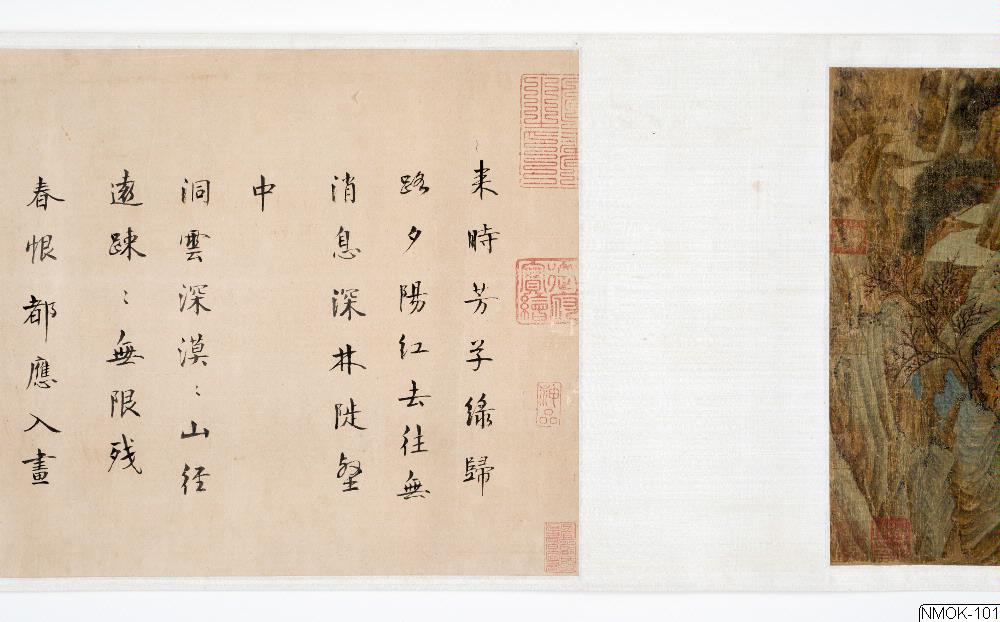 来時芳草綠歸
路夕陽紅去往無
消息深林陡壑
中
洞雲深漠〻山徑
遠踈〻無限残
春恨都應入畫
神品
NMOK-101